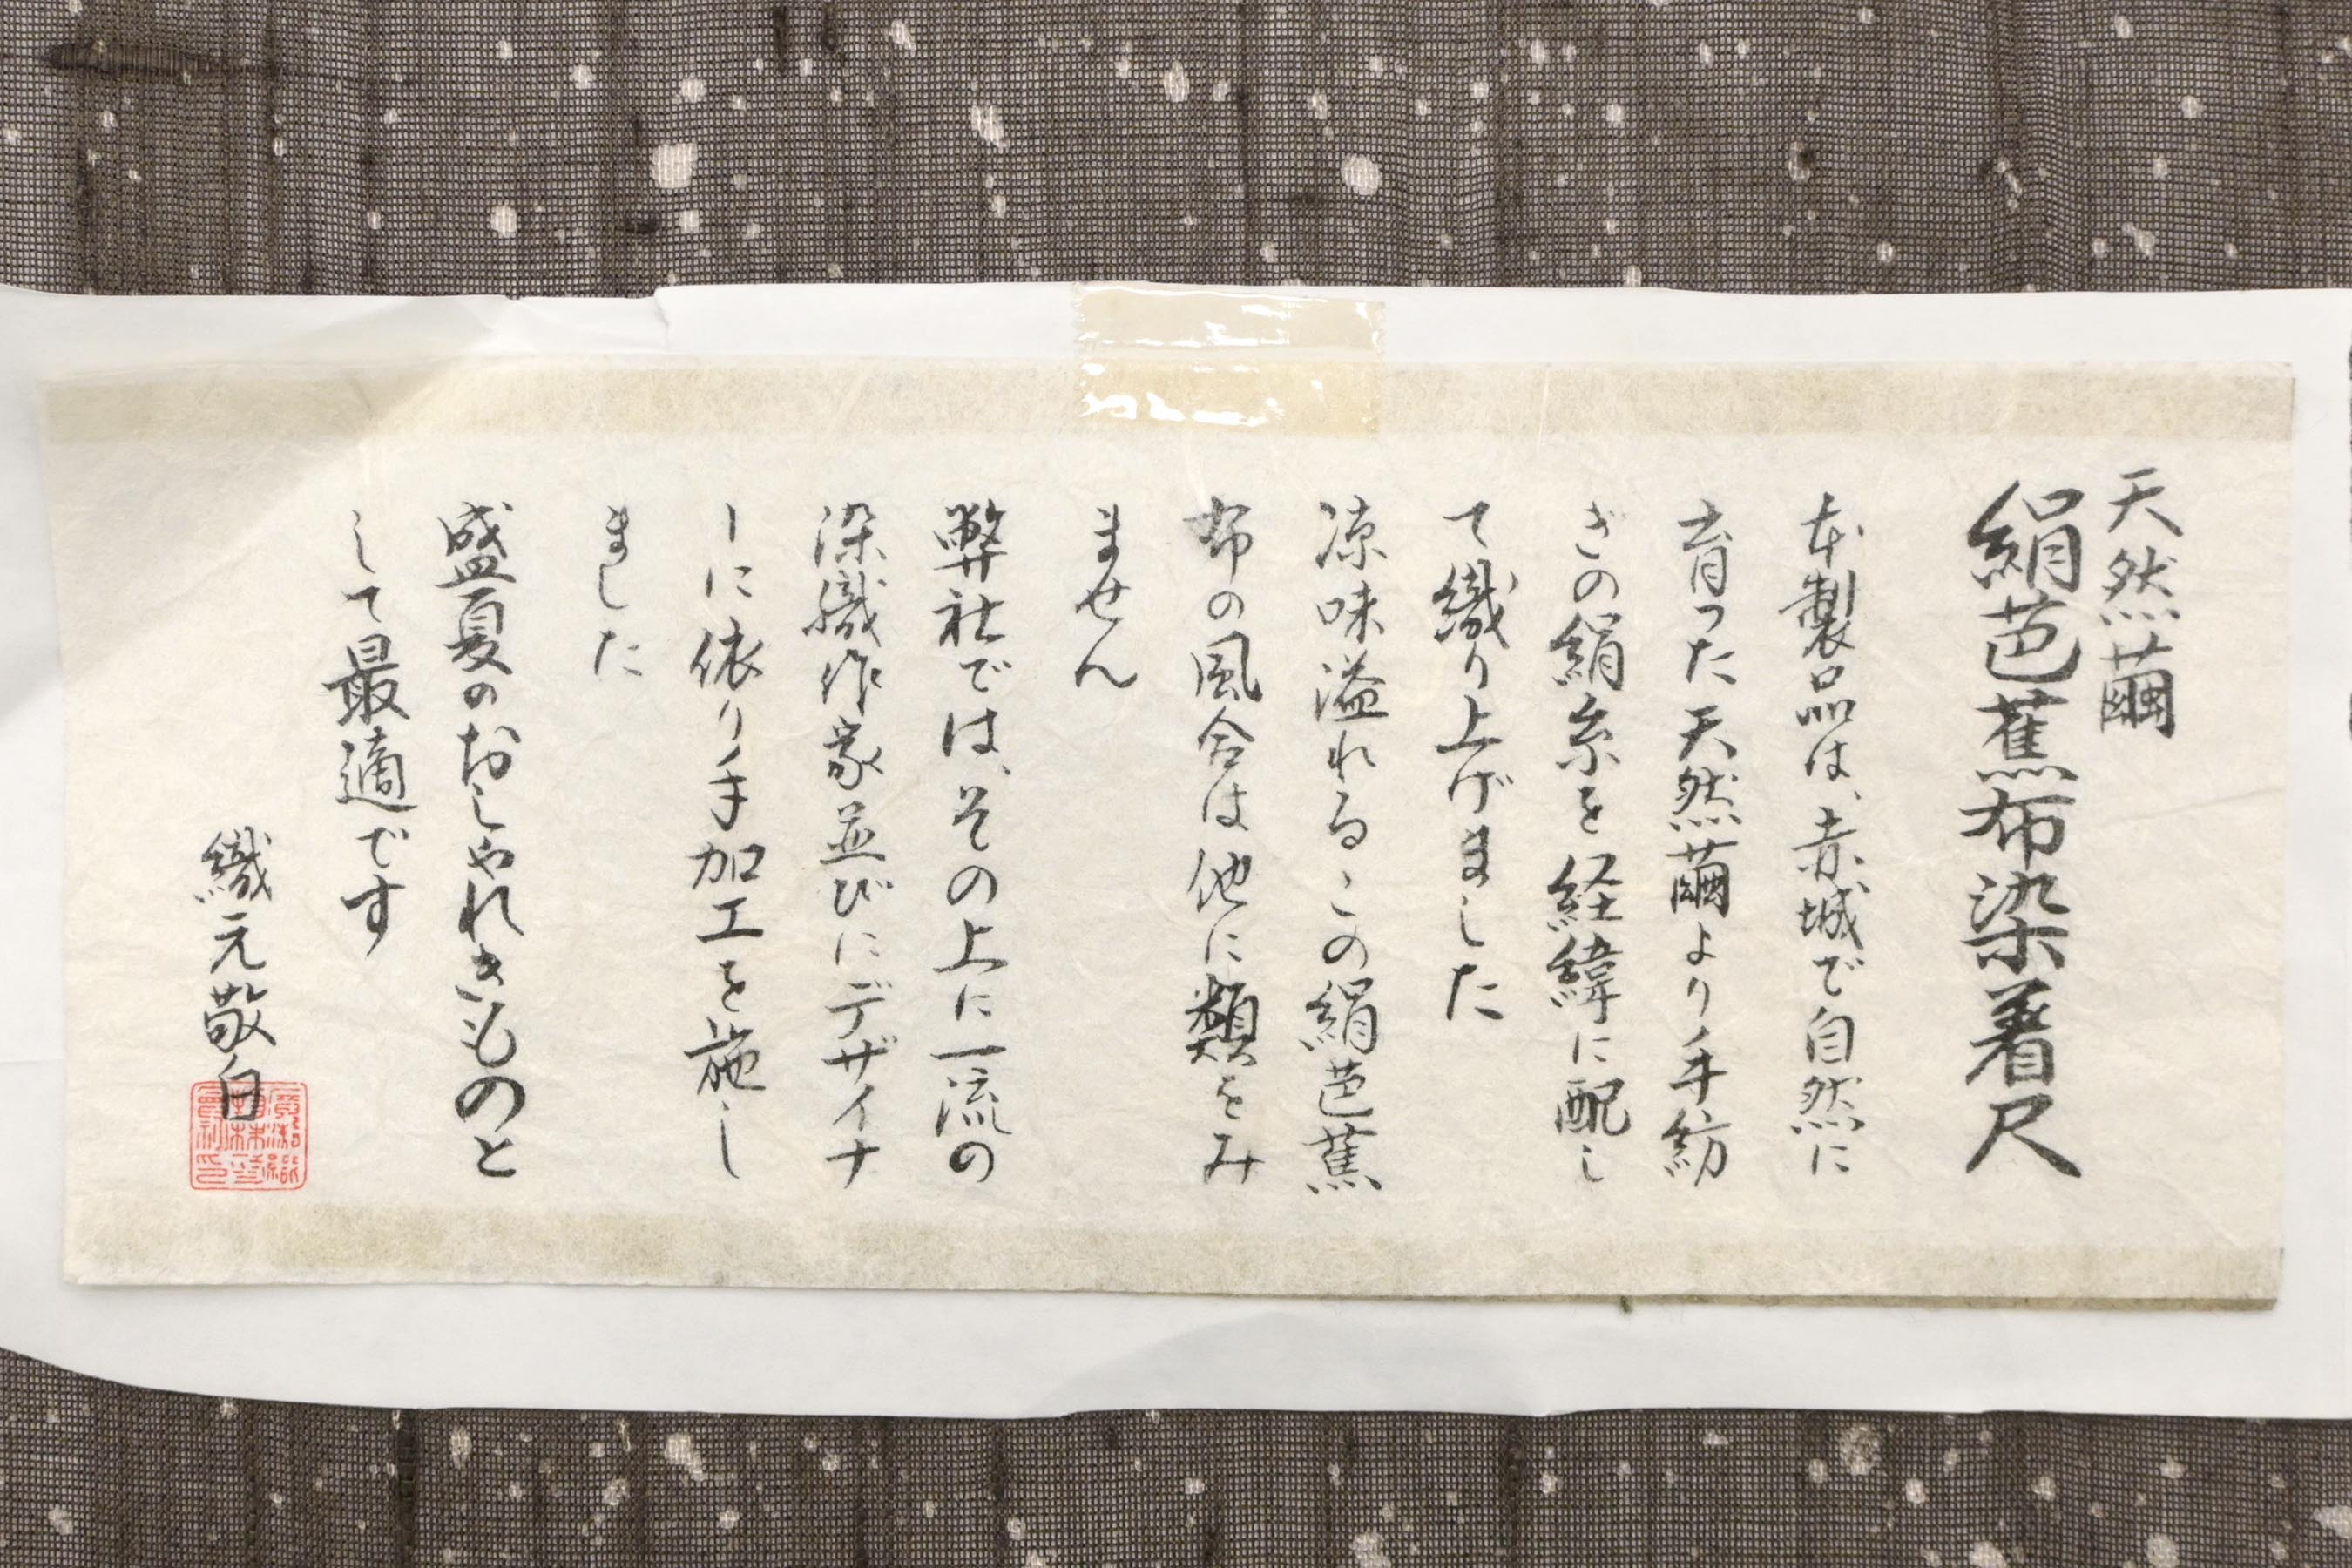 天然繭
絹芭蕉布染着尺
本製品は、赤城で自然に
育った天然繭より手紡
ぎの絹糸を経緯に配し
て織り上げました
涼味溢れるこの絹芭蕉
布の風合は他に類をみ
ません
弊社では、その上に一流の
染織作家並びにデザイナ
ーに依り手加工を施し
ました
盛夏のおしゃれきものと
して最適です
織元敬白